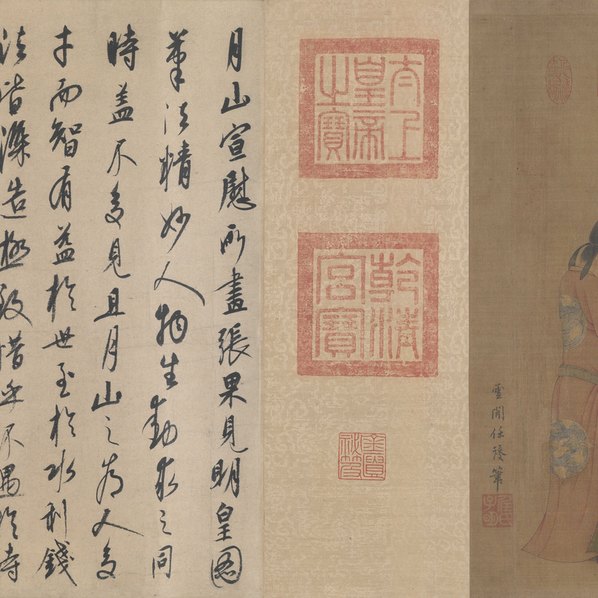 雲間任
筆
太上皇帝之寶
乾清宮寶
月山宣慰所畫張果見明皇圖
筆法精妙人物生動求之同
時蓋不多見且月山之為人多
才而智有益於世至於水利錢
法皆深造極致惜乎不遇於時